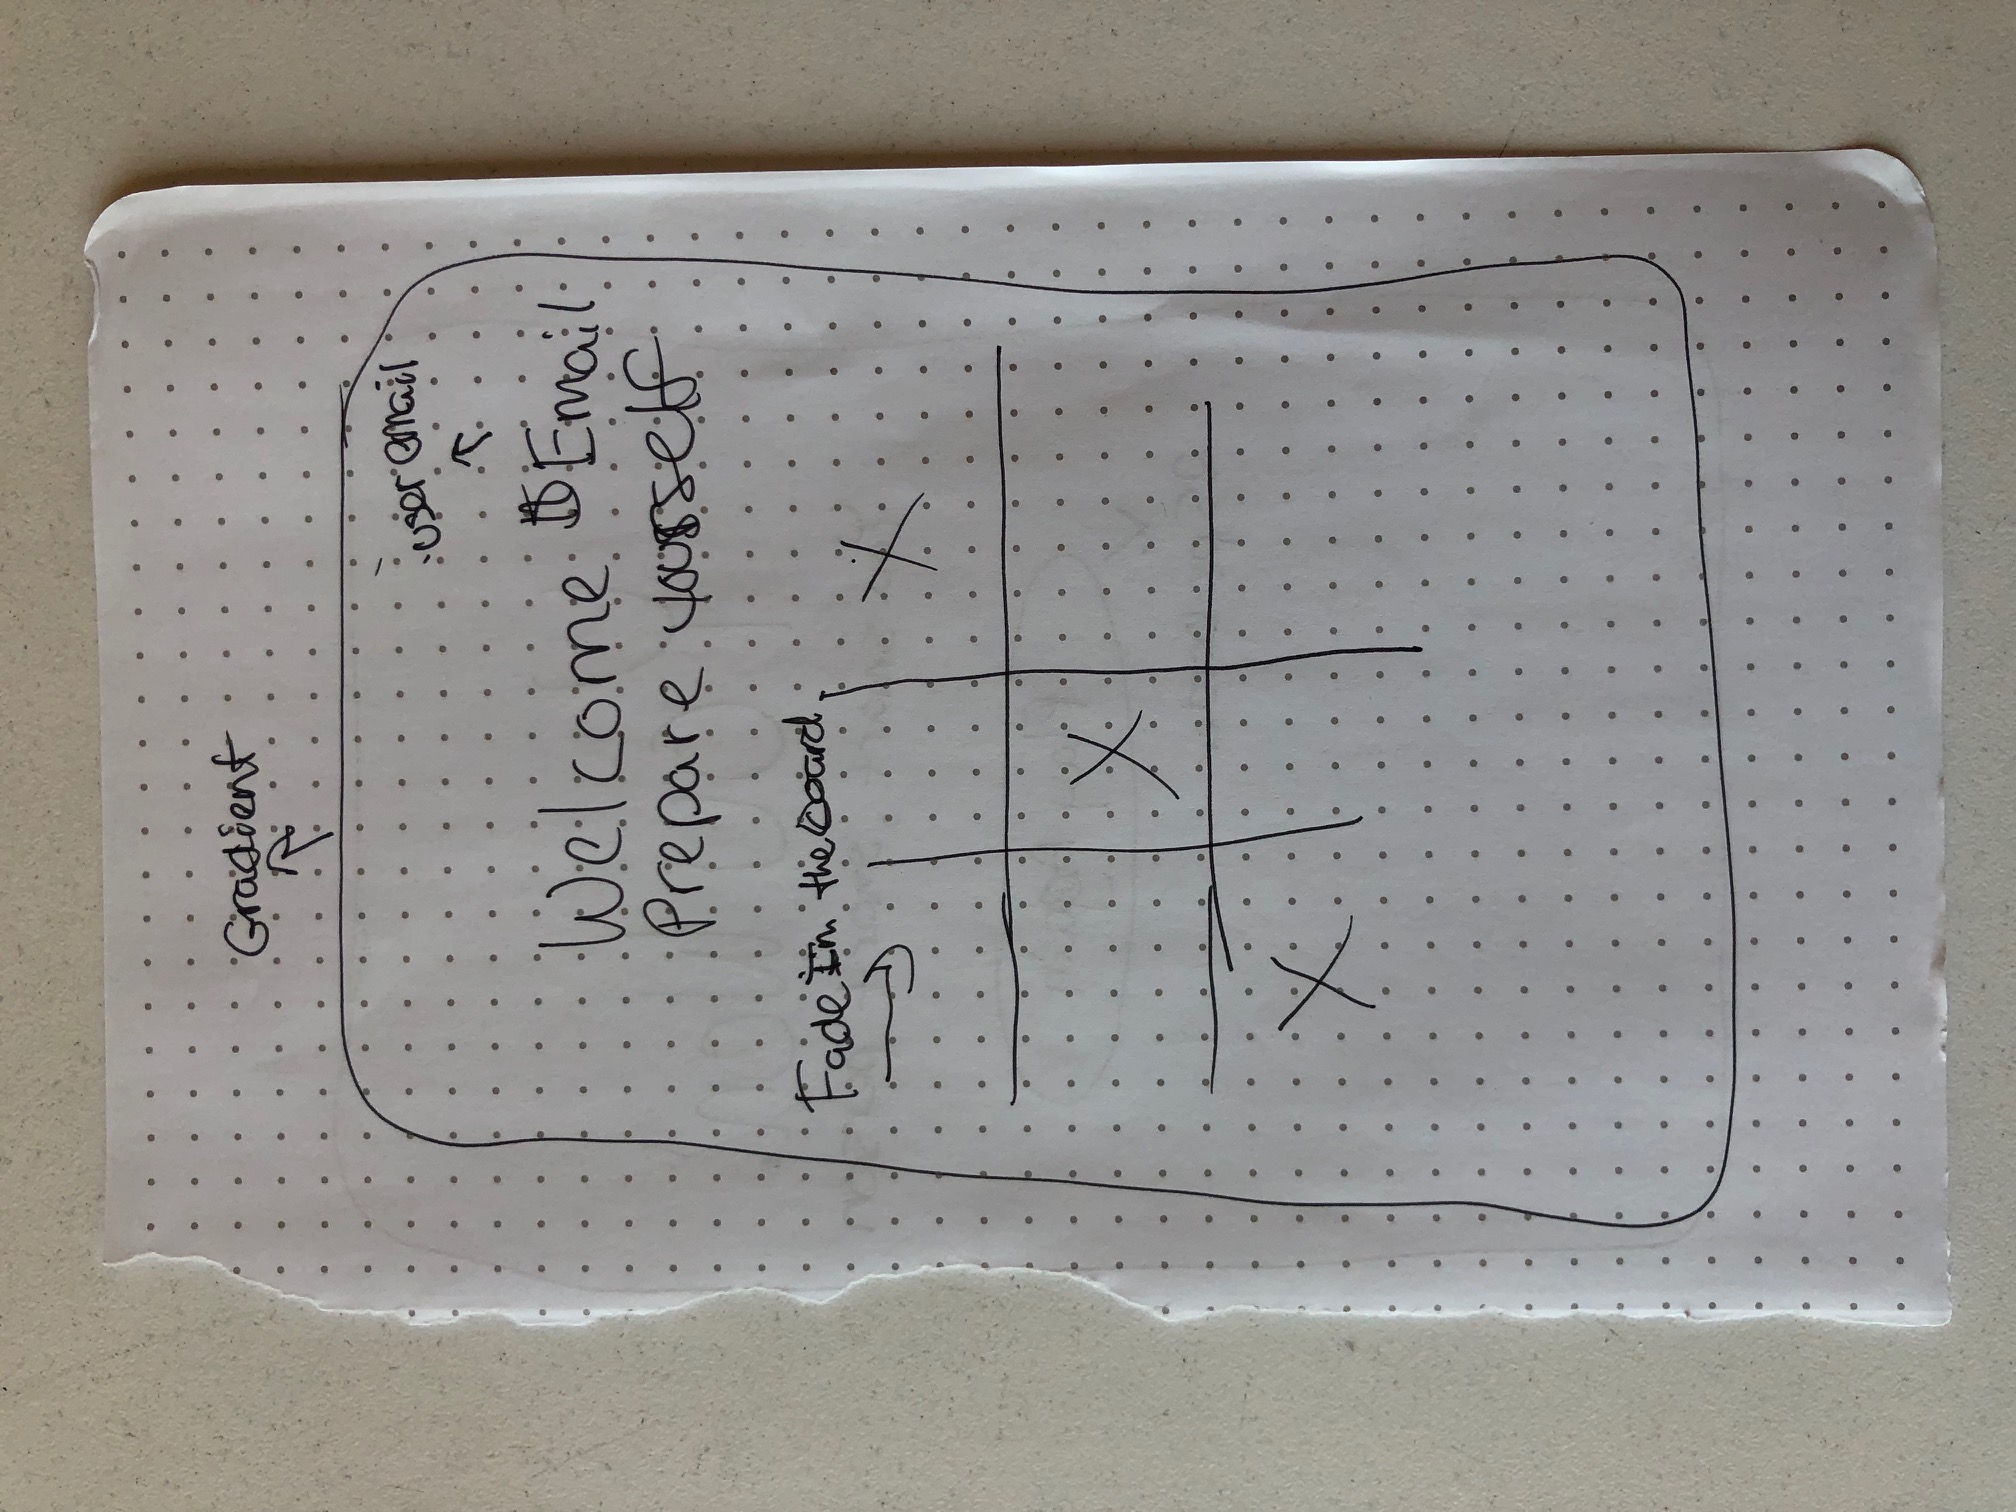 Gradient
user email
Welcome $Email
Prepare yourself
Fade In the board
X
X
X